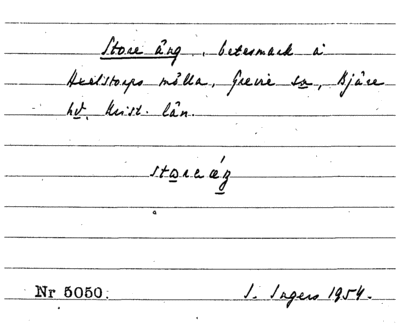 Store äng, betesmark å
Axelstorps mölla, Grevie sn, Bjäre
hd. Krist. län.
Nr 5050.
I. Ingers 1954.